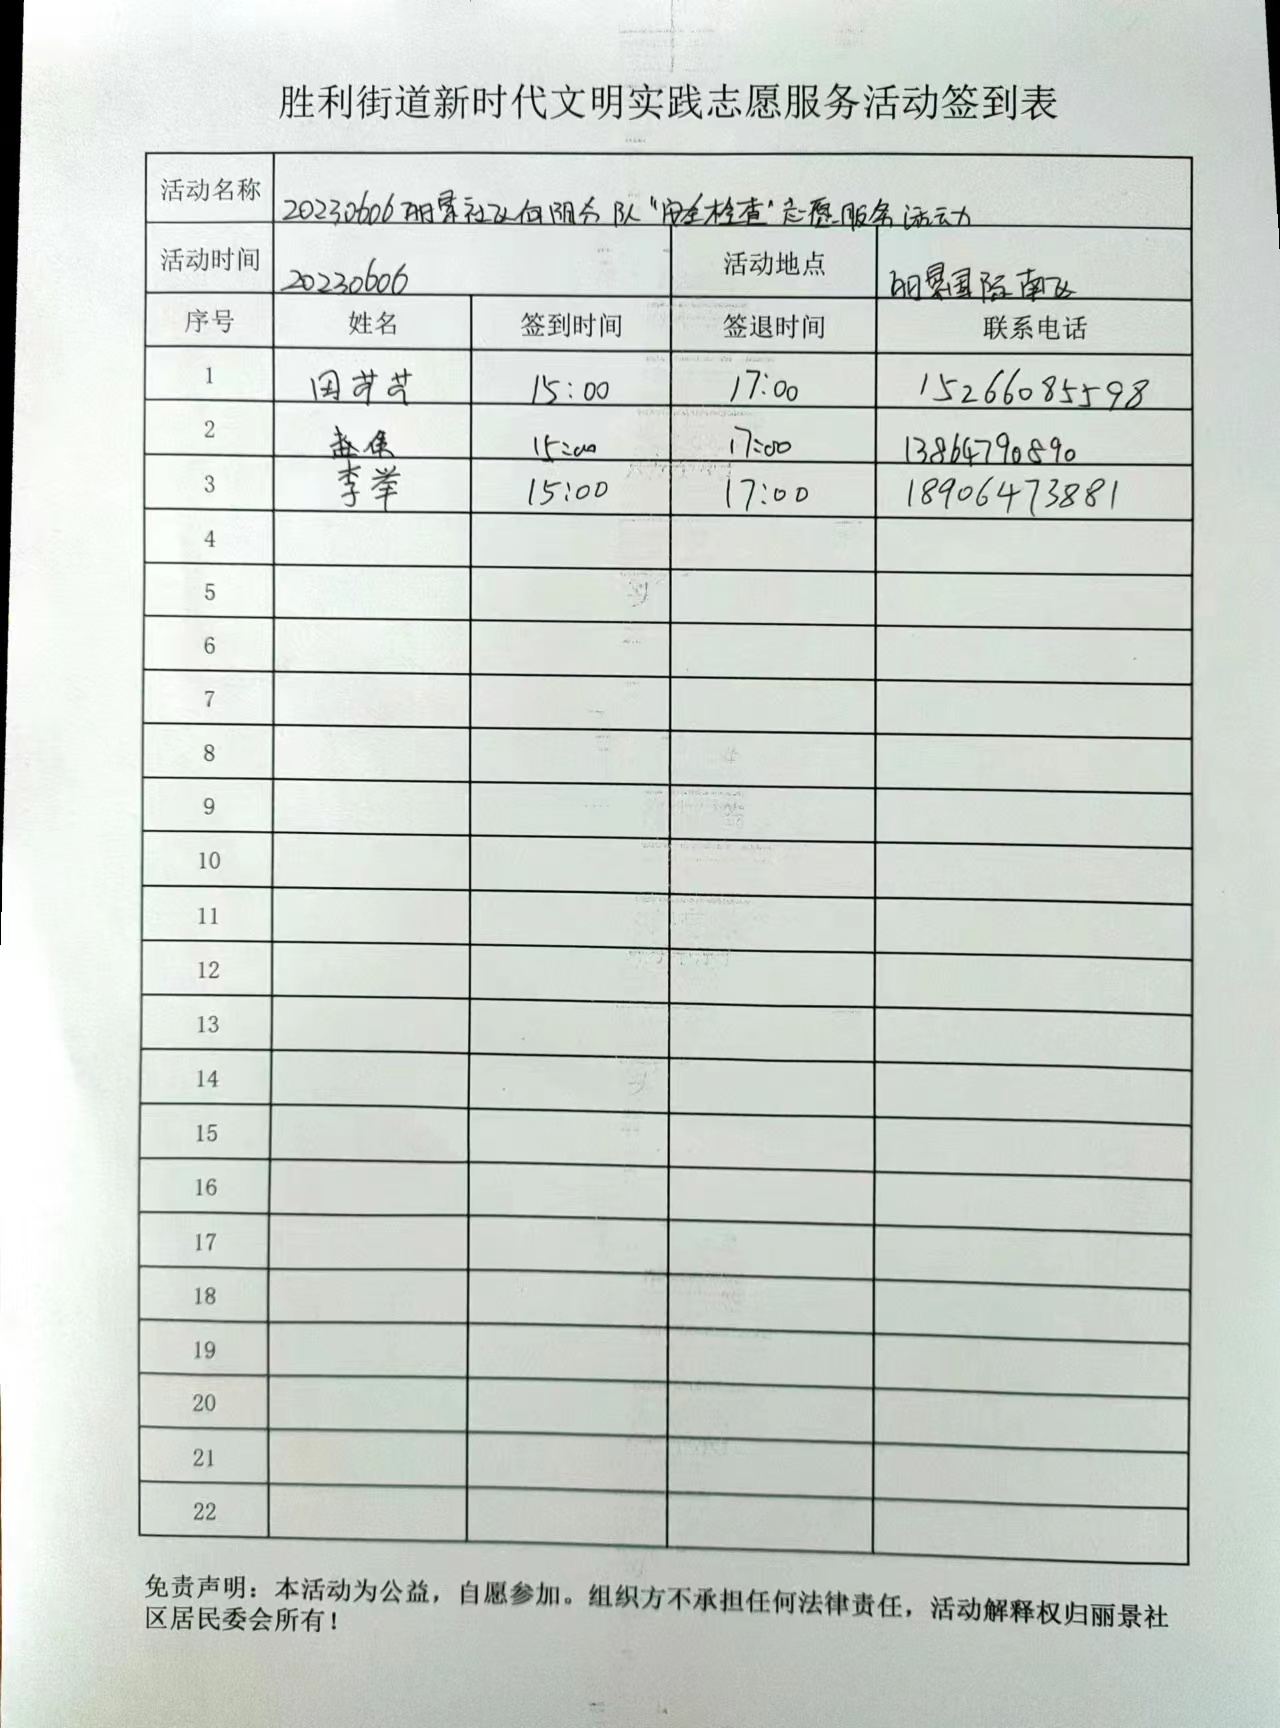 胜利街道新时代文明实践志愿服务活动签到表
活动名称 20230606丽景社区向阳分队“安全检查”志愿服务活动
活动时间 20230606 活动地点 丽景国际南区
序号 姓名 签到时间 签退时间 联系电话
1 田芹芹 15:00 17:00 15266085598
2 15:00 17:00 13864790890
3 李举 15:00 17:00 18906473881
4
5
6
7
8
9
10
11
12
13
14
15
16
17
18
19
20
21
22
免责声明：本活动为公益，自愿参加。组织方不承担任何法律责任，活动解释权归丽景社
区居民委会所有！